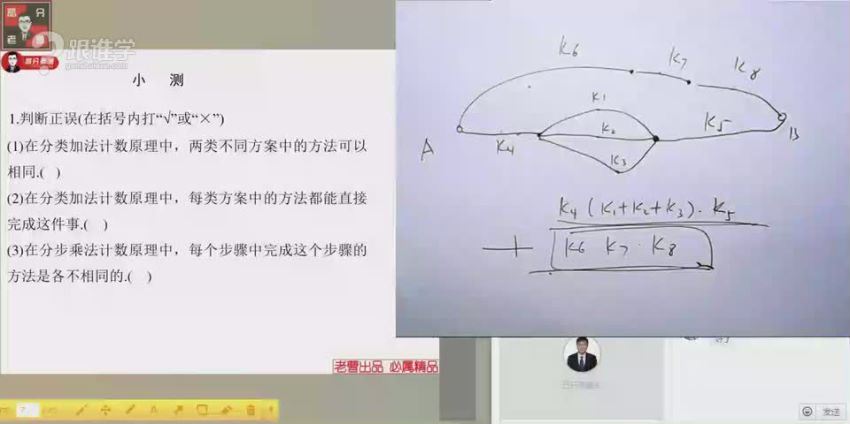 高分
老曹
跟谁学
高分老曹
小 测
1.判断正误(在括号内打“√”或“×”)
(1)在分类加法计数原理中，两类不同方案中的方法可以
相同.( )
(2)在分类加法计数原理中，每类方案中的方法都能直接
完成这件事.( )
(3)在分步乘法计数原理中，每个步骤中完成这个步骤的
方法是各不相同的.( )
老曹出品 必属精品
K6 K7 K8
K1
A K4 K2 K5 B
K3
K4 (K1+K2+K3)·K5
+ K6 K7·K8
7
发送